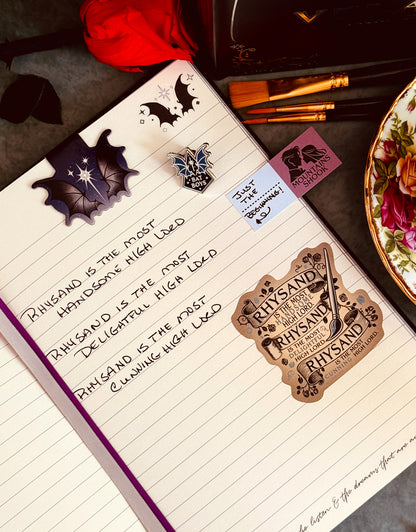 JUST
THE
BEGINNING!
MOUNTAINS
SHOOK
BOYS
RHYSAND IS THE MOST
HANDSOME HIGH LORD
RHYSAND IS THE MOST
DELIGHTFUL HIGH LORD
RHYSAND IS THE MOST
CUNNING HIGH LORD
RHYSAND
IS THE MOST
HIGH LORD
RHYSAND
IS THE MOST
HIGH LORD
RHYSAND
IS THE MOST
CUNNING
HIGH LORD
listen & the dreams that are